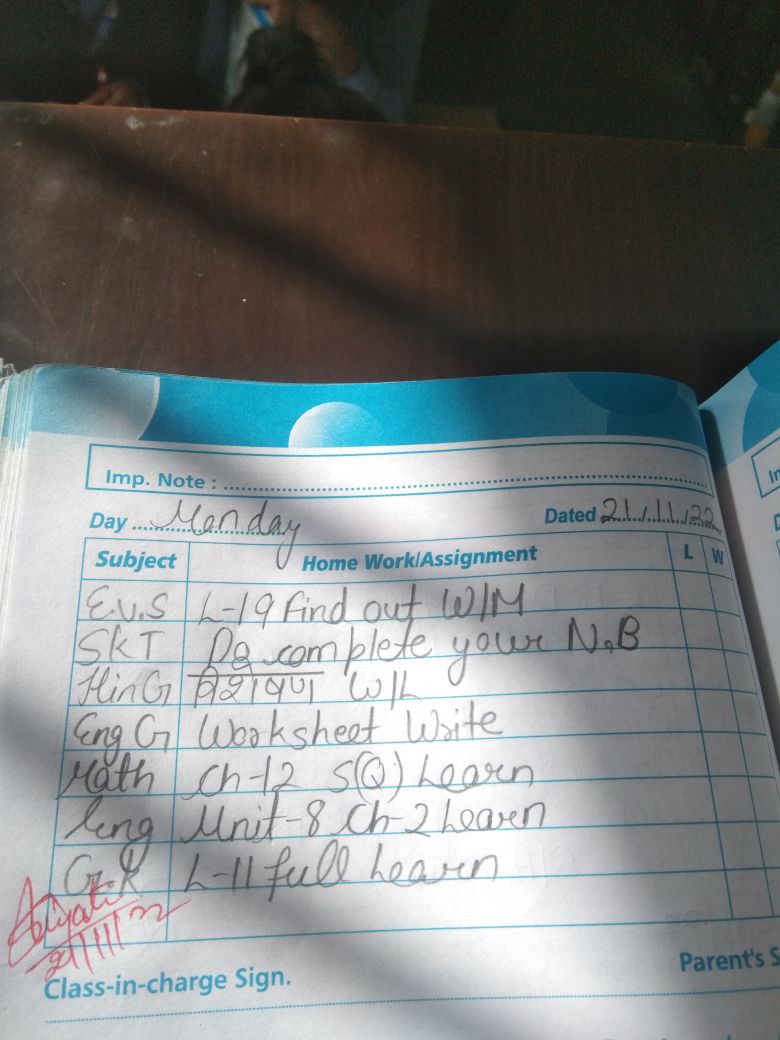 Imp. Note :
Day Monday Dated 21/11/22
Subject Home Work/Assignment L W
E.V.S L-19 Find out W/M
SKT Do complete your N.B
Hin G विशेषण W/L
Eng G Worksheet Write
Math Ch-12 S(Q) Learn
Eng Unit-8 Ch-2 Learn
G.K L-11 full Learn
21/11/22
Class-in-charge Sign. Parent's S